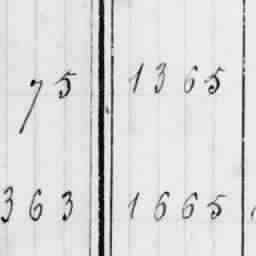 75 1365
363 1665